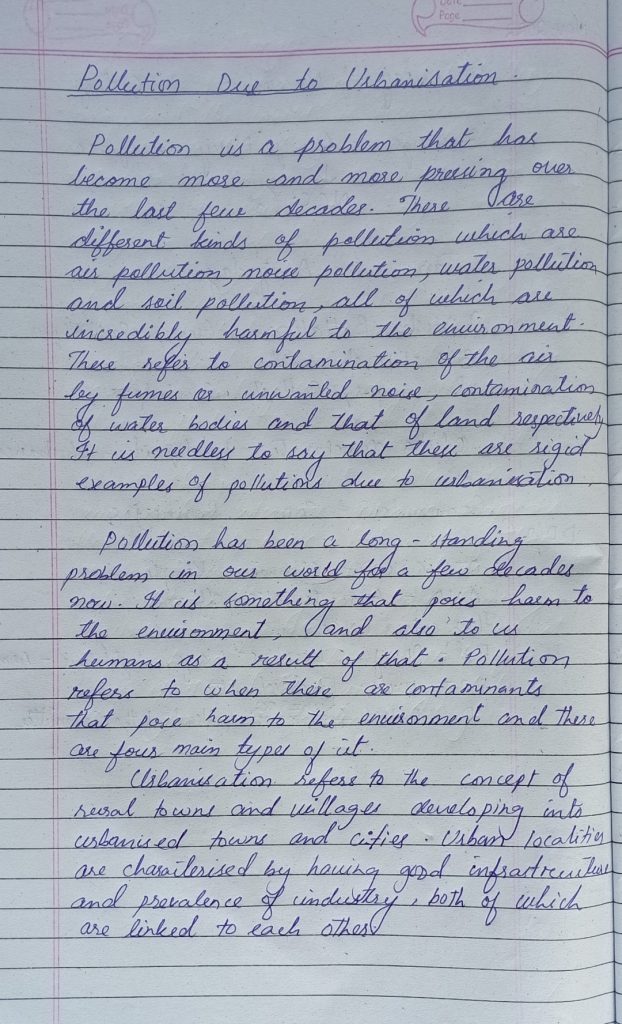 Page
Pollution Due to Urbanisation.
Pollution is a problem that has
become more and more pressing over
the last few decades. There are
different kinds of pollution which are
air pollution, noise pollution, water pollution
and soil pollution, all of which are
incredibly harmful to the environment.
These refer to contamination of the air
by fumes or unwanted noise, contamination
of water bodies and that of land respectively
It is needless to say that these are rigid
examples of pollutions due to urbanisation.
Pollution has been a long-standing
problem in our world for a few decades
now. It is something that poses harm to
the environment, and also to us
humans as a result of that. Pollution
refers to when there are contaminants
that pose harm to the environment and there
are four main types of it.
Urbanisation refers to the concept of
rural towns and villages developing into
urbanised towns and cities. Urban localities
are characterised by having good infrastructure
and prevalence of industry, both of which
are linked to each other